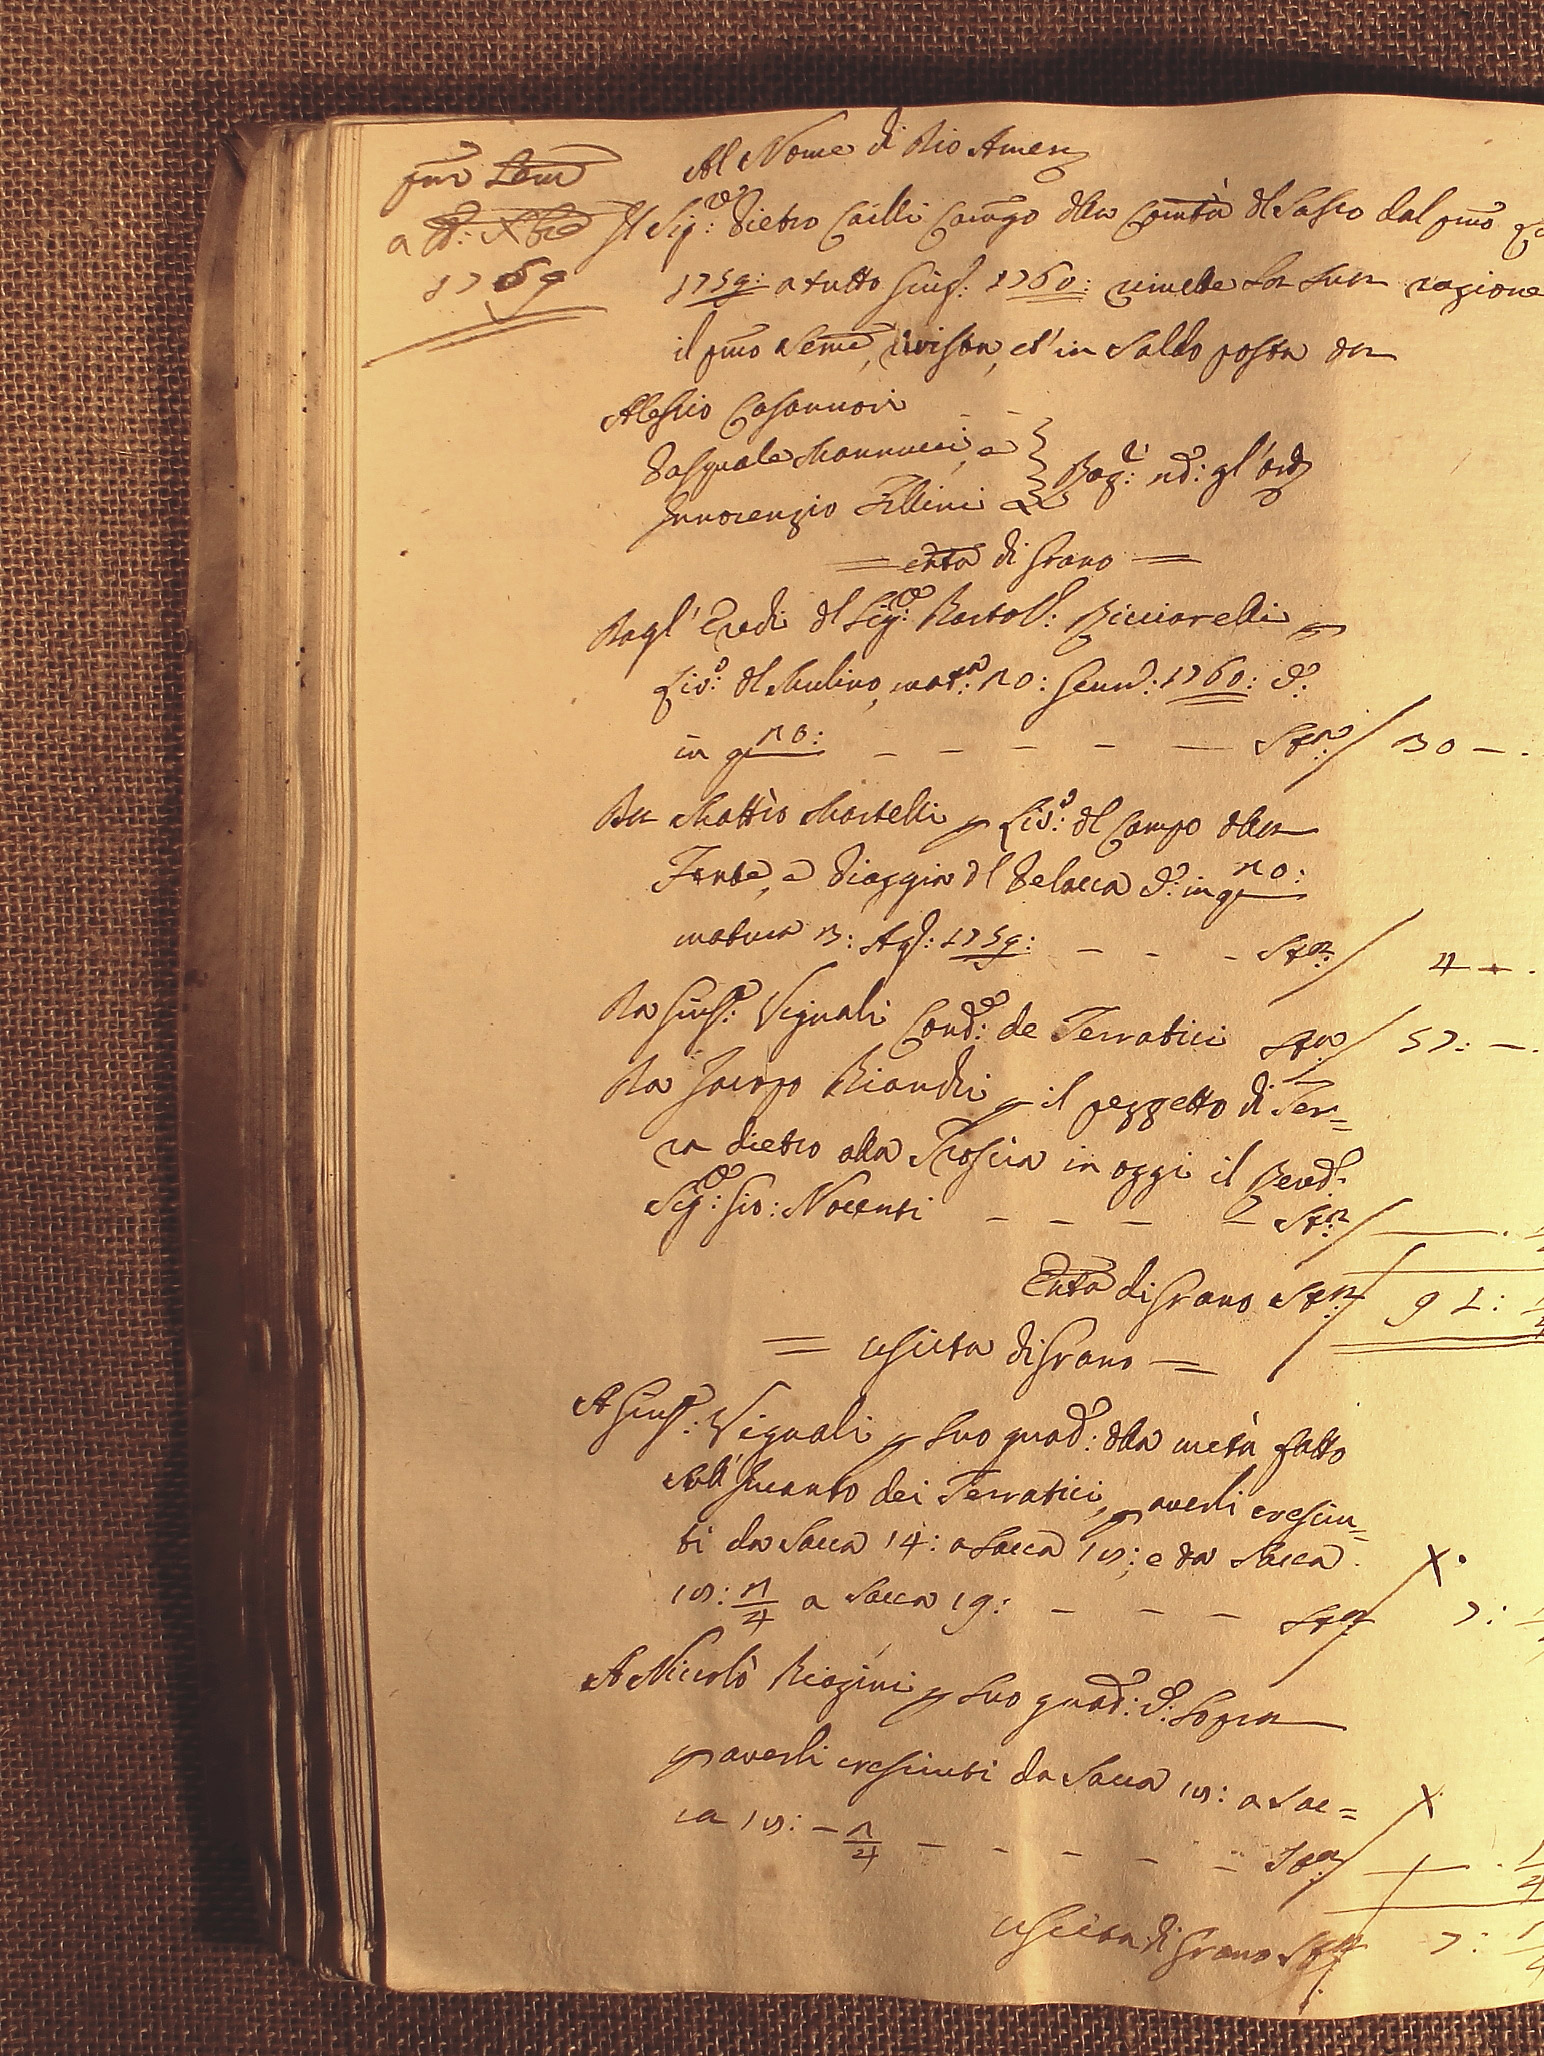 pmo Seme
a tt: Xbre
1759
Al Nome di Dio Amen
Il Sig:re Pietro Cailli Camgo della Comtà del Sasso dal pmo
1759: a tutto Giug: 1760: rimette la sua ragione
il pmo Seme, rivista, et in Saldo posta da
Alessio Casannovi
Pasquale Mannucci, e
Innocenzio Fillini
Rag:i nd: gl'ordi
= enta di Grano =
Dagl' Eredi del Sig:re Bartol: Ricciarelli p
Liv:o del Mulino, mat:a 10: Genn: 1760: d:
in qno: - - - - - Sta: 30 - .
Da Mattio Martelli p Liv:o del Campo della
Fonte, e Piaggia del Pelacca d: in qno:
matura 3: Ag: 1759: - - - Sta: 4 - .
Da Gius: Vignali Cond:e de Terratici Sta: 57: - .
Da Jacopo Biondi p il pezzetto di Ter=
ra dietro alla Troscia in oggi il Revd:
Sig:re Gio: Nocenti - - - - Sta:
Enta di Grano Sta: 91:
= uscita di Grano =
A Gius: Vignali p suo quad: della metà fatto
all' Incanto dei Terratici, p averli cresciu=
ti da Sacca 14: a Sacca 18: e da Sacca
18: 1/4 a Sacca 19: - - - Sta: 7:
A Niccolò Biagini p suo quad: d: Sopra
p averli cresciuti da Sacca 18: a Sac=
ca 18: - 1/4 - - - - - Sta: 1/4
uscita di Grano Sta: 7: 1/4